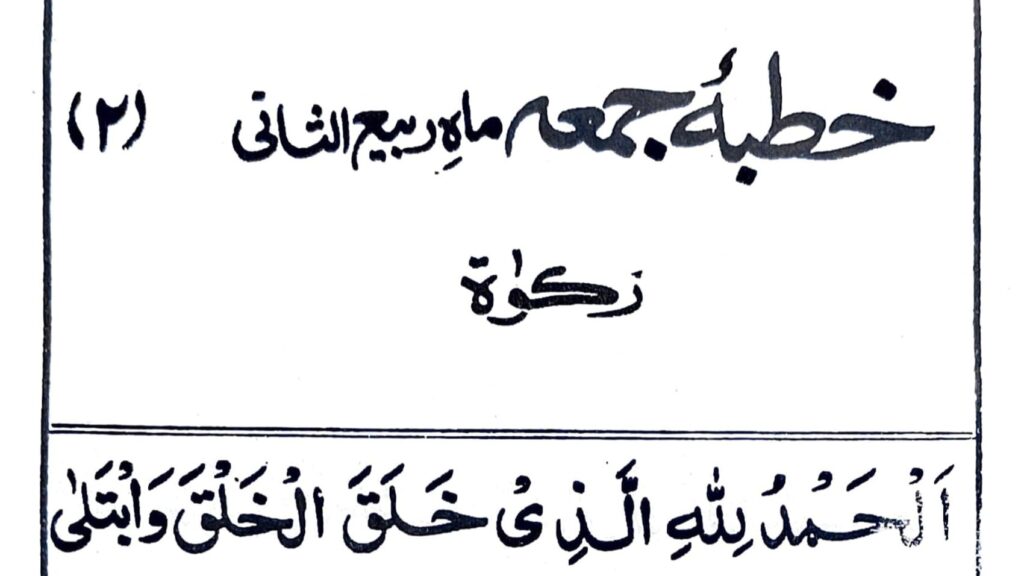 خطبۂ جمعہ ماہِ ربیع الثانی (۲)
زکوٰة
اَلْحَمْدُ لِلّٰهِ الَّذِیْ خَلَقَ الْخَلْقَ وَابْتَلٰی